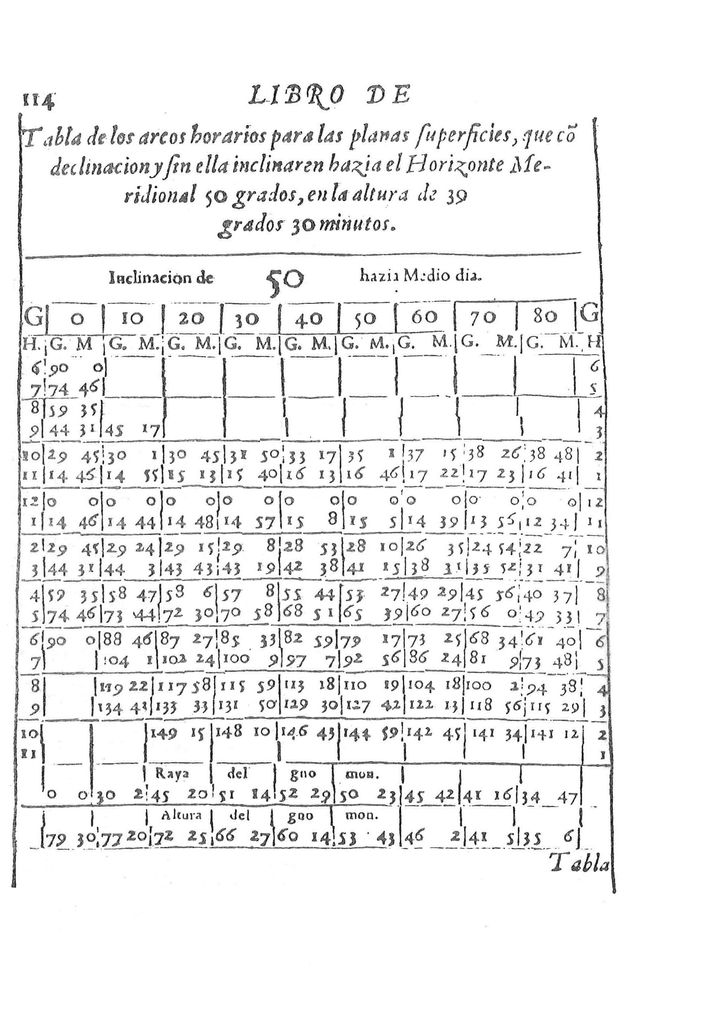 114 LIBRO DE
Tabla de los arcos horarios para las planas superficies, que cõ
declinacion y sin ella inclinaren hazia el Horizonte Me-
ridional 50 grados, en la altura de 39
grados 30 minutos.
Inclinacion de 50 hazia Medio dia.
G 0 10 20 30 40 50 60 70 80 G
H. G. M G. M. G. M. G. M. G. M. G. M. G. M. G. M. G. M. H
6 90 0 6
7 74 46 5
8 59 35 4
9 44 31 45 17 3
10 29 45 30 1 30 45 31 50 33 17 35 1 37 15 38 26 38 48 2
11 14 46 14 55 15 13 15 40 16 13 16 46 17 22 17 23 16 41 1
12 0 0 0 0 0 0 0 0 0 0 0 0 0 0 0 0 0 0 12
1 14 46 14 44 14 48 14 57 15 8 15 5 14 39 13 56 12 34 11
2 29 45 29 24 29 15 29 8 28 53 28 10 26 35 24 54 22 7 10
3 44 31 44 3 43 43 43 19 42 38 41 15 38 31 35 52 31 41 9
4 59 35 58 47 58 6 57 8 55 44 53 27 49 29 45 56 40 37 8
5 74 46 73 44 72 30 70 58 68 51 65 39 60 27 56 0 49 33 7
6 90 0 88 46 87 27 85 33 82 59 79 17 73 25 68 34 61 40 6
7 104 1 102 24 100 9 97 7 92 56 86 24 81 9 73 48 5
8 119 22 117 58 115 59 113 18 110 19 104 18 100 2 94 38 4
9 134 41 133 33 131 50 129 30 127 42 122 13 118 56 115 29 3
10 149 15 148 10 146 43 144 59 142 45 141 34 141 12 2
11 1
Raya del gno mon.
0 0 30 2 45 20 51 14 52 29 50 23 45 42 41 16 34 47
Altura del gno mon.
79 30 77 20 72 25 66 27 60 14 53 43 46 2 41 5 35 6
Tabla